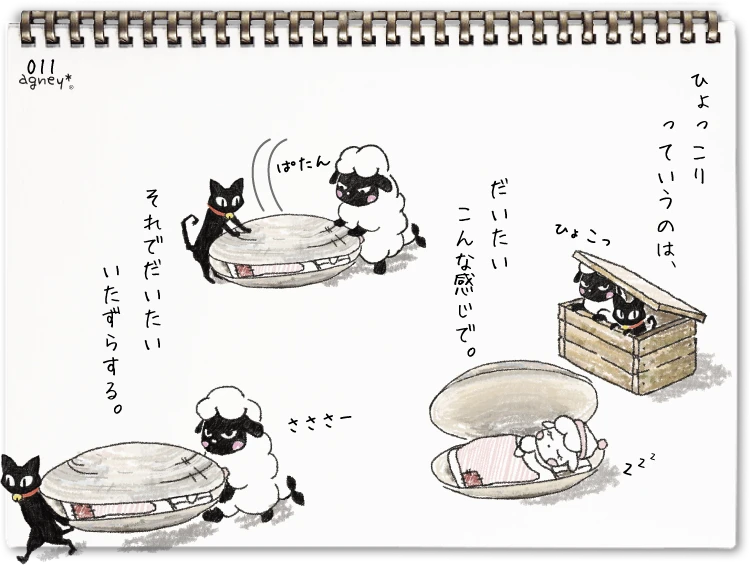 011
agney*®
ひょっこり
っていうのは、
ひょこっ
だいたい
こんな感じで。
zzz
ぱたん
それでだいたい
いたずらする。
さささー